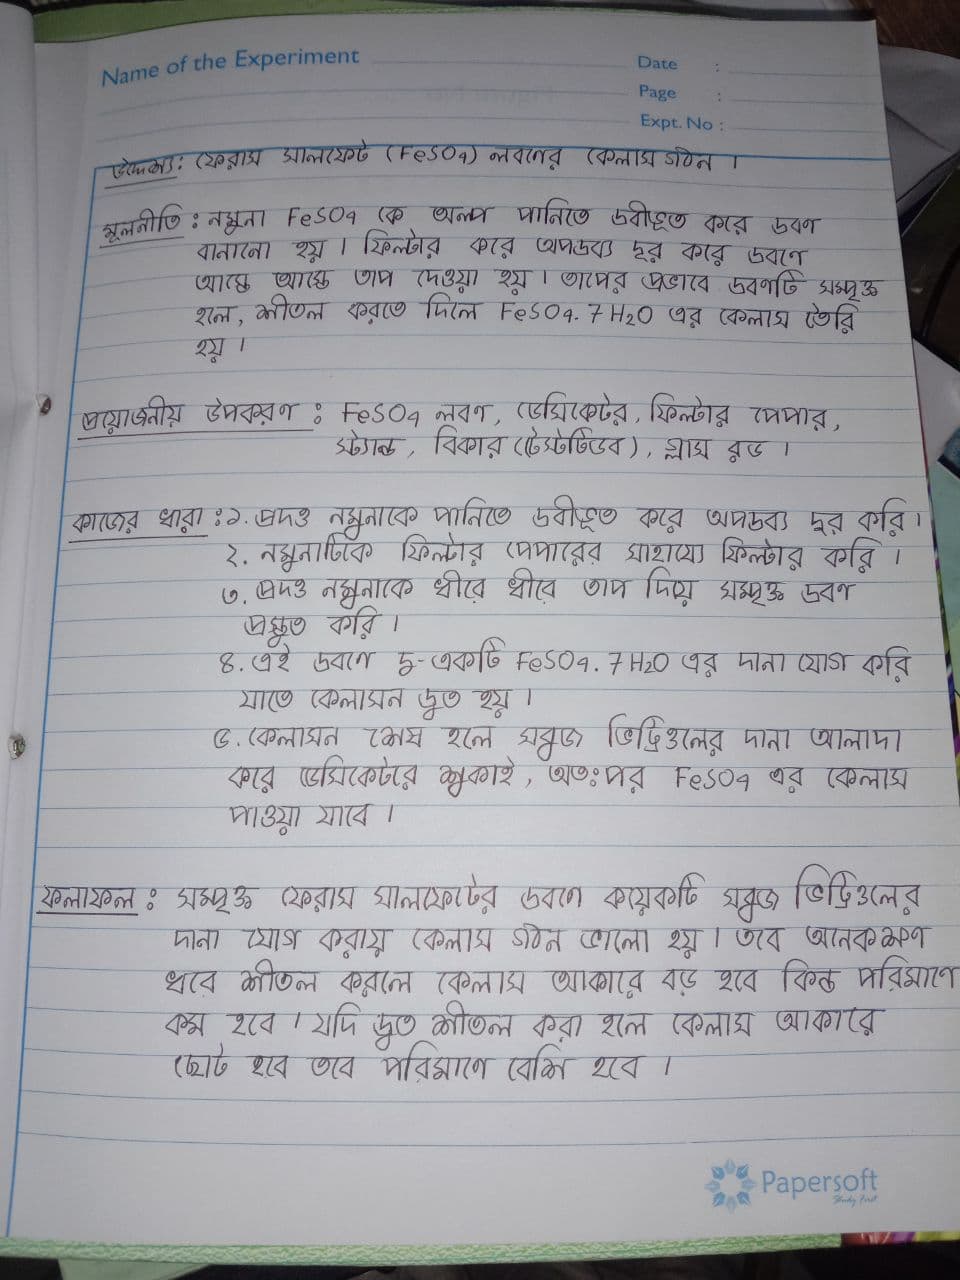 Name of the Experiment
Date :
Page :
Expt. No :
উদ্দেশ্য: ফেরাস সালফেট (FeSO4) লবণের কেলাস গঠন।
মূলনীতি : নমুনা FeSO4 কে অল্প পানিতে দ্রবীভূত করে দ্রবণ
বানানো হয়। ফিল্টার করে অপদ্রব্য দূর করে দ্রবণে
আস্তে আস্তে তাপ দেওয়া হয়। তাপের প্রভাবে দ্রবণটি সম্পৃক্ত
হলে, শীতল করতে দিলে FeSO4.7H2O এর কেলাস তৈরি
হয়।
প্রয়োজনীয় উপকরণ : FeSO4 লবণ, ডেসিকেটর, ফিল্টার পেপার,
স্ট্যান্ড, বিকার (টেস্টটিউব), গ্লাস রড।
কাজের ধারা : ১. প্রদত্ত নমুনাকে পানিতে দ্রবীভূত করে অপদ্রব্য দূর করি।
২. নমুনাটিকে ফিল্টার পেপারের সাহায্যে ফিল্টার করি।
৩. প্রদত্ত নমুনাকে ধীরে ধীরে তাপ দিয়ে সম্পৃক্ত দ্রবণ
প্রস্তুত করি।
৪. এই দ্রবণে দু-একটি FeSO4.7H2O এর দানা যোগ করি
যাতে কেলাসন দ্রুত হয়।
৫. কেলাসন শেষ হলে সবুজ ভিট্রিওলের দানা আলাদা
করে ডেসিকেটরে শুকাই, অতঃপর FeSO4 এর কেলাস
পাওয়া যাবে।
ফলাফল : সম্পৃক্ত ফেরাস সালফেটের দ্রবণে কয়েকটি সবুজ ভিট্রিওলের
দানা যোগ করায় কেলাস গঠন ভালো হয়। তবে অনেকক্ষণ
ধরে শীতল করলে কেলাস আকারে বড় হবে কিন্তু পরিমাণে
কম হবে। যদি দ্রুত শীতল করা হলে কেলাস আকারে
ছোট হবে তবে পরিমাণে বেশি হবে।
Papersoft
Study First